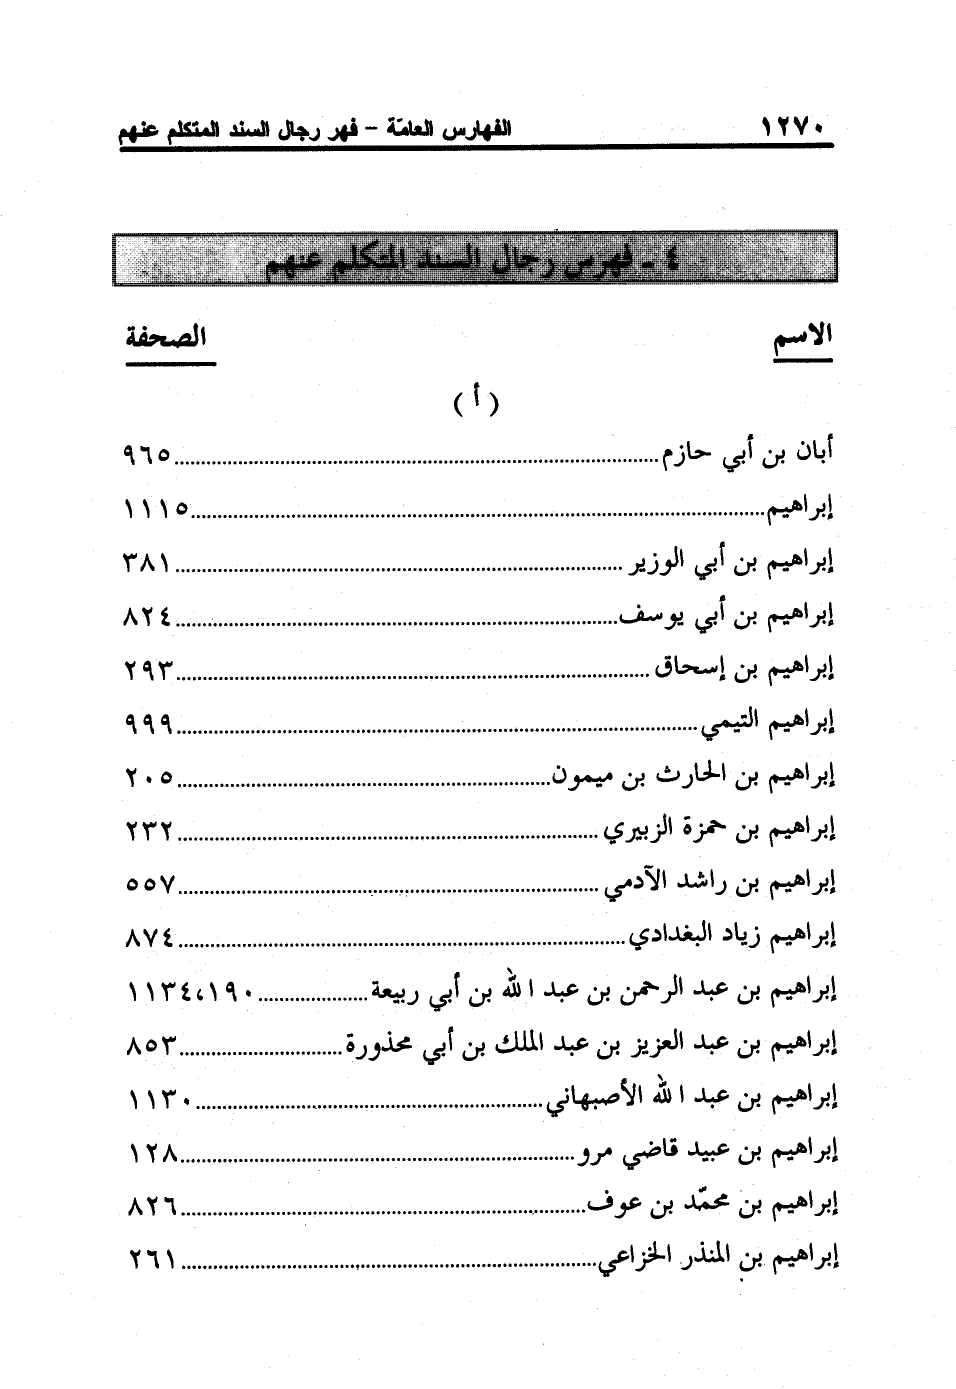 ١٢٧٠ الفهارس العامّة - فهر رجال السند المتكلم عنهم
٤ ـ فهرس رجال السند المتكلم عنهم
الاسم الصحفة
( أ )
أبان بن أبي حازم ٩٦٥
إبراهيم ١١١٥
إبراهيم بن أبي الوزير ٣٨١
إبراهيم بن أبي يوسف ٨٢٤
إبراهيم بن إسحاق ٢٩٣
إبراهيم التيمي ٩٩٩
إبراهيم بن الحارث بن ميمون ٢٠٥
إبراهيم بن حمزة الزبيري ٢٣٢
إبراهيم بن راشد الآدمي ٥٥٧
إبراهيم زياد البغدادي ٨٧٤
إبراهيم بن عبد الرحمن بن عبد الله بن أبي ربيعة ١١٣٤،١٩٠
إبراهيم بن عبد العزيز بن عبد الملك بن أبي محذورة ٨٥٣
إبراهيم بن عبد الله الأصبهاني ١١٣٠
إبراهيم بن عبيد قاضي مرو ١٢٨
إبراهيم بن محمّد بن عوف ٨٢٦
إبراهيم بن المنذر الخزاعي ٢٦١